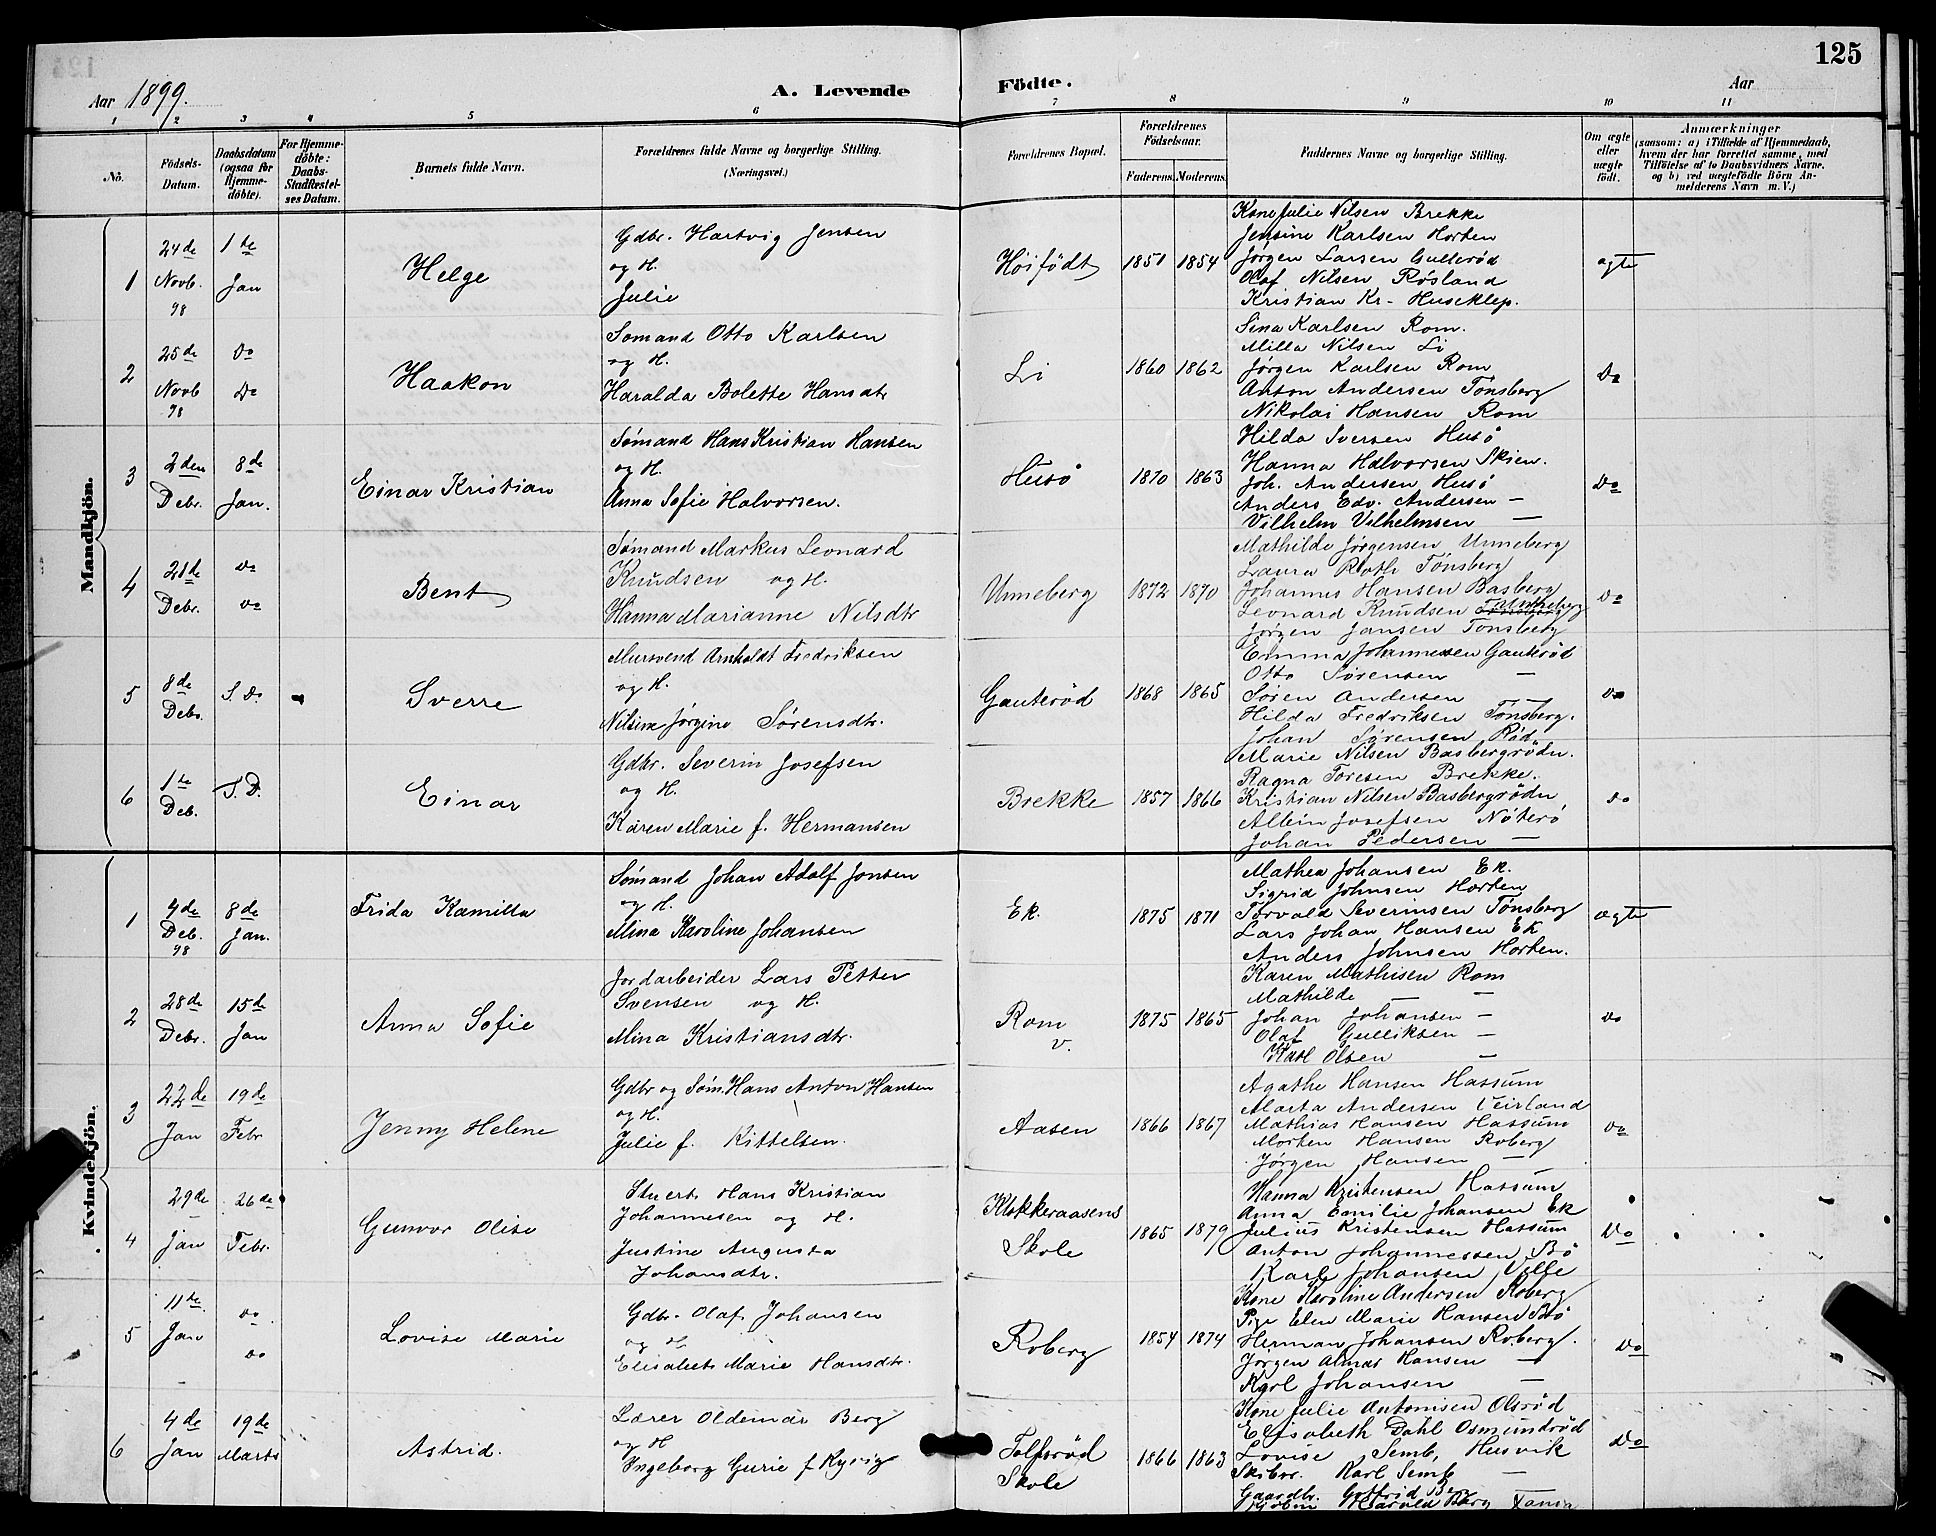 125
Aar 1899.
A. Levende Födte.
Aar
1 2 3 4 5 6 7 8 9 10 11
No.
Födsels-Datum.
Daabsdatum (ogsaa for Hjemmedöbte).
For Hjemmedöbte: Daabs-Stadfæstelses Datum.
Barnets fulde Navn.
Forældrenes fulde Navne og borgerlige Stilling. (Næringsvei.)
Forældrenes Bopæl.
Forældrenes Födselsaar.
Faderens. Moderens.
Faddernes Navne og borgerlige Stilling.
Om ægte eller uægte født.
Anmærkninger
(saasom: a) i Tilfælde af Hjemmedaab, hvem der har forrettet samme, med Tilföielse af to Daabsvidners Navne, og b) ved uægtefödte Börn Anmelderens Navn m. V.)
Mandkjön.
1
24de Novb. 98
1ste Jan
Helge
Gdbr. Hartvig Jensen
og H.
Julie
Höifödt
1851 1854
Kone Julie Nilsen Brekke
Jensine Karlsen Horten
Jørgen Larsen Gulterød
Olaf Nilsen Røsland
Kristian Kr- Huseklep.
ægte
2
25de Novb 98
Do Do
Haakon
Sømand Otto Karlsen
og H.
Haralda Bolette Hansdtr
Li
1860 1862
Sina Karlsen Rom.
Milla Nilsen Li
Jørgen Karlsen Rom
Anton Andersen Tønsberg
Nikolai Hansen Rom
Do
3
2den Debr.
8de Jan.
Einar Kristian
Sømand Hans Kristian Hansen
og H.
Anna Sofie Halvorsen.
Husö
1870 1863
Hilda Iversen Husö
Hanna Halvorsen Skien.
Joh. Andersen Husö
Anders Edv. Andersen —
Vilhelm Vilhelmsen —
Do
4
21de Debr.
do do
Bent
Sømand Markus Leonard
Knudsen og H.
Hanna Marianne Nilsdtr
Unneberg
1872 1870
Mathilde Jørgensen Unneberg
Laura Roth Tønsberg
Johannes Hansen Basberg
Leonard Knudsen Unneberg
Jørgen Jansen Tønsberg
Do
5
8de Debr.
S. Do.
Sverre
Mursvend Arnholdt Fredriksen
og H.
Nilsine Jørgine Sørensdtr.
Gauterød
1868 1865
Emma Johannesen Gauterød
Otto Sørensen —
Søren Andersen —
Hilda Fredriksen Tønsberg.
Johan Sørensen Rød
do
6
1ste Deb.
S. D.
Einar
Gdbr. Severin Josefsen
og H.
Karen Marie f. Hermansen
Brekke
1857 1866
Marie Nilsen Basbergrödn.
Ragna Toresen Brekke.
Kristian Nilsen Basbergrödn
Albin Josefsen Nöterö
Johan Pedersen —
do
Kvindekjön.
1
4de Deb. 98
8de Jan.
Frida Kamilla
Sømand Johan Adolf Jonsen
og H.
Mina Karoline Johansen
Ek.
1875 1871
Mathea Johansen Ek.
Sigrid Johnsen Horten
Torvald Severinsen Tønsberg
Lars Johan Hansen Ek
Anders Johnsen Horten.
ægte
2
28de Debr.
15de Jan
Anna Sofie
Jordarbeider Lars Petter
Svensen og H.
Mina Kristiansdtr.
Rom v.
1875 1865
Karen Mathisen Rom
Mathilde — —
Johan Johansen —
Olaf Gulliksen —
Karl Olsen —
do
3
22de Jan
19de Febr
Jenny Helene
Gdbr og Søm. Hans Anton Hansen
og H.
Julie f. Kittelsen.
Aasen
1866 1867
Agathe Hansen Hassum
Marta Andersen Veirland
Mathias Hansen Hassum
Morten Hansen Roberg
Jørgen Hansen —
Do
4
29de Jan
26de Febr.
Gunvor Olise
Stuert Hans Kristian
Johannesen og H.
Justine Augusta
Johansdtr.
Klokkeraasens
Skole
1865 1879
Hanna Kristensen Hassum
Anna Emilie Johansen Ek
Julius Kristensen Hassum
Anton Johannessen Bö
Karl Johansen Velle
Do
5
11te Jan
do do
Lovise Marie
Gdbr. Olaf Johansen
og H
Elisabet Marie Hansdtr.
Roberg
1854 1874
Kone Karoline Andersen Roberg
Pige Elen Marie Hansen Bö
Herman Johansen Roberg.
Jørgen Almar Hansen —
Karl Johansen —
Do
6
4de Jan
19de Marts
Astrid.
Lærer Oldemar Berg
og H
Ingeborg Gurie f Kyvig
Tolfsrød
Skole
1866 1863
Kone Julie Antonisen Olsrød
Elisabeth Dahl Osmundrød
Lovise Semb, Husvik
Skibsr. Karl Semb —
Gaardbr. Gottfrid Berg
Harald Berg
Do